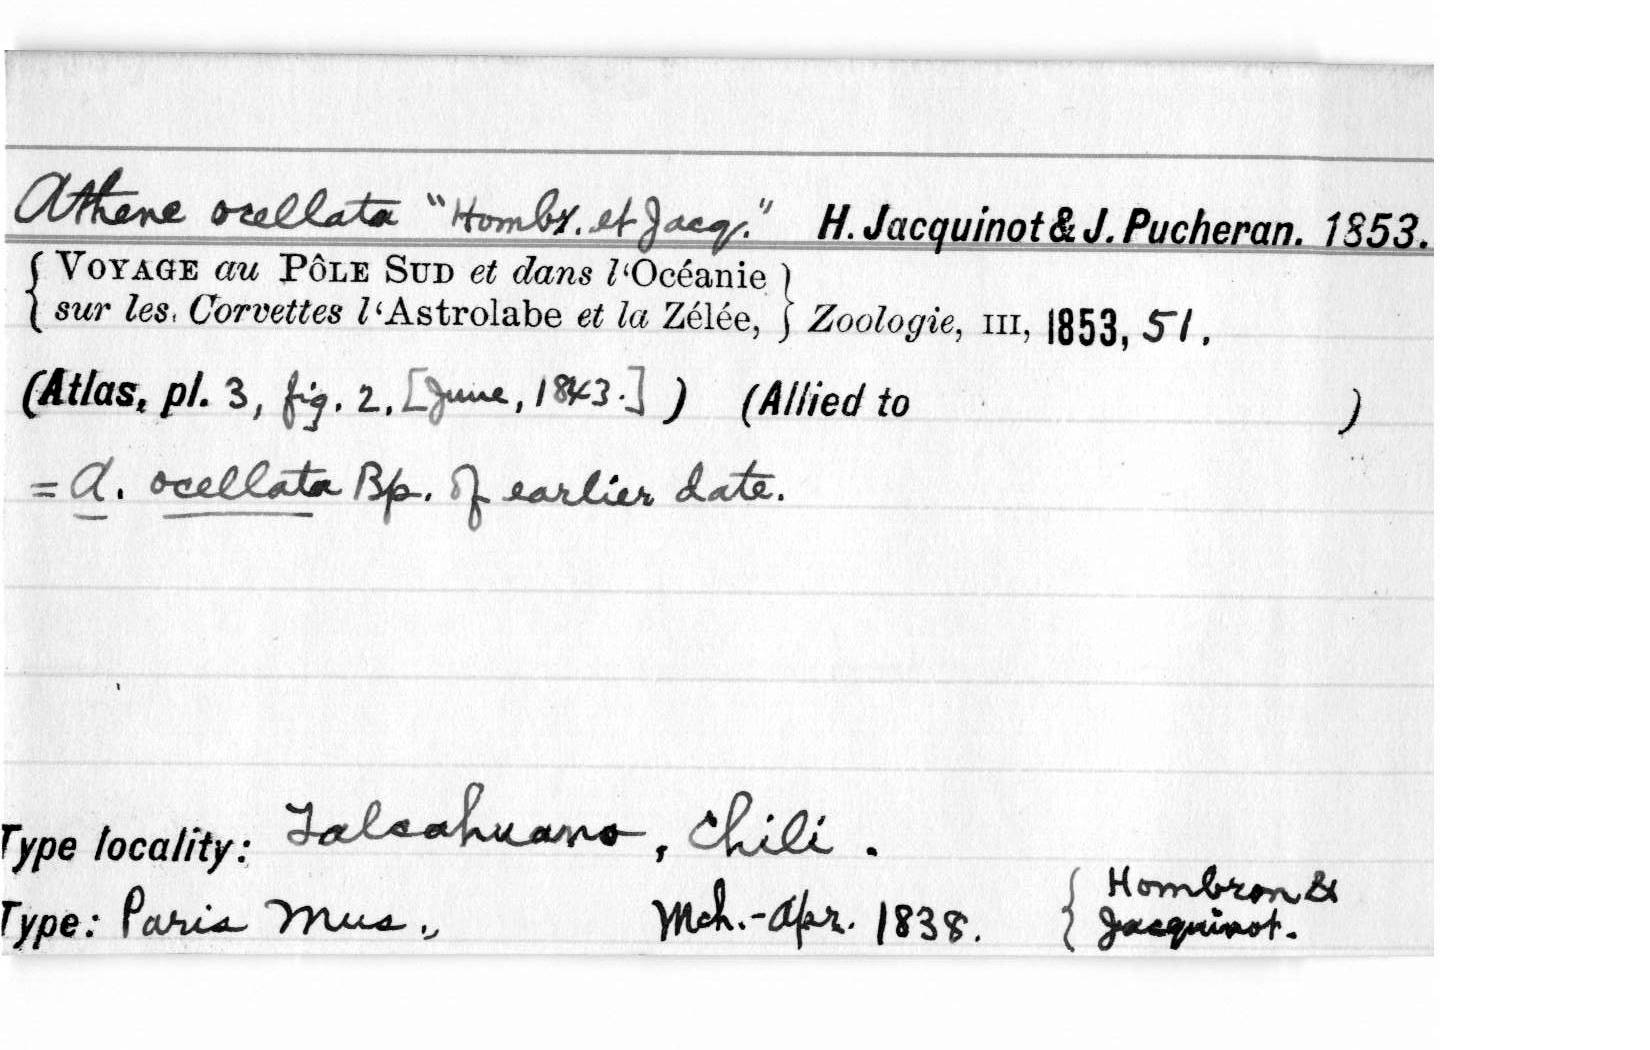 Athene ocellata "Hombr. et Jacq." H. Jacquinot & J. Pucheran. 1853.
{ VOYAGE au PÔLE SUD et dans l'Océanie }
{ sur les Corvettes l'Astrolabe et la Zélée, } Zoologie, III, 1853, 51.
(Atlas, pl. 3, fig. 2, [June, 1843.] ) (Allied to )
= A. ocellata Bp. of earlier date.
Type locality: Talcahuano, Chili.
Type: Paris Mus., Mch.-Apr. 1838. { Hombron &
Jacquinot.